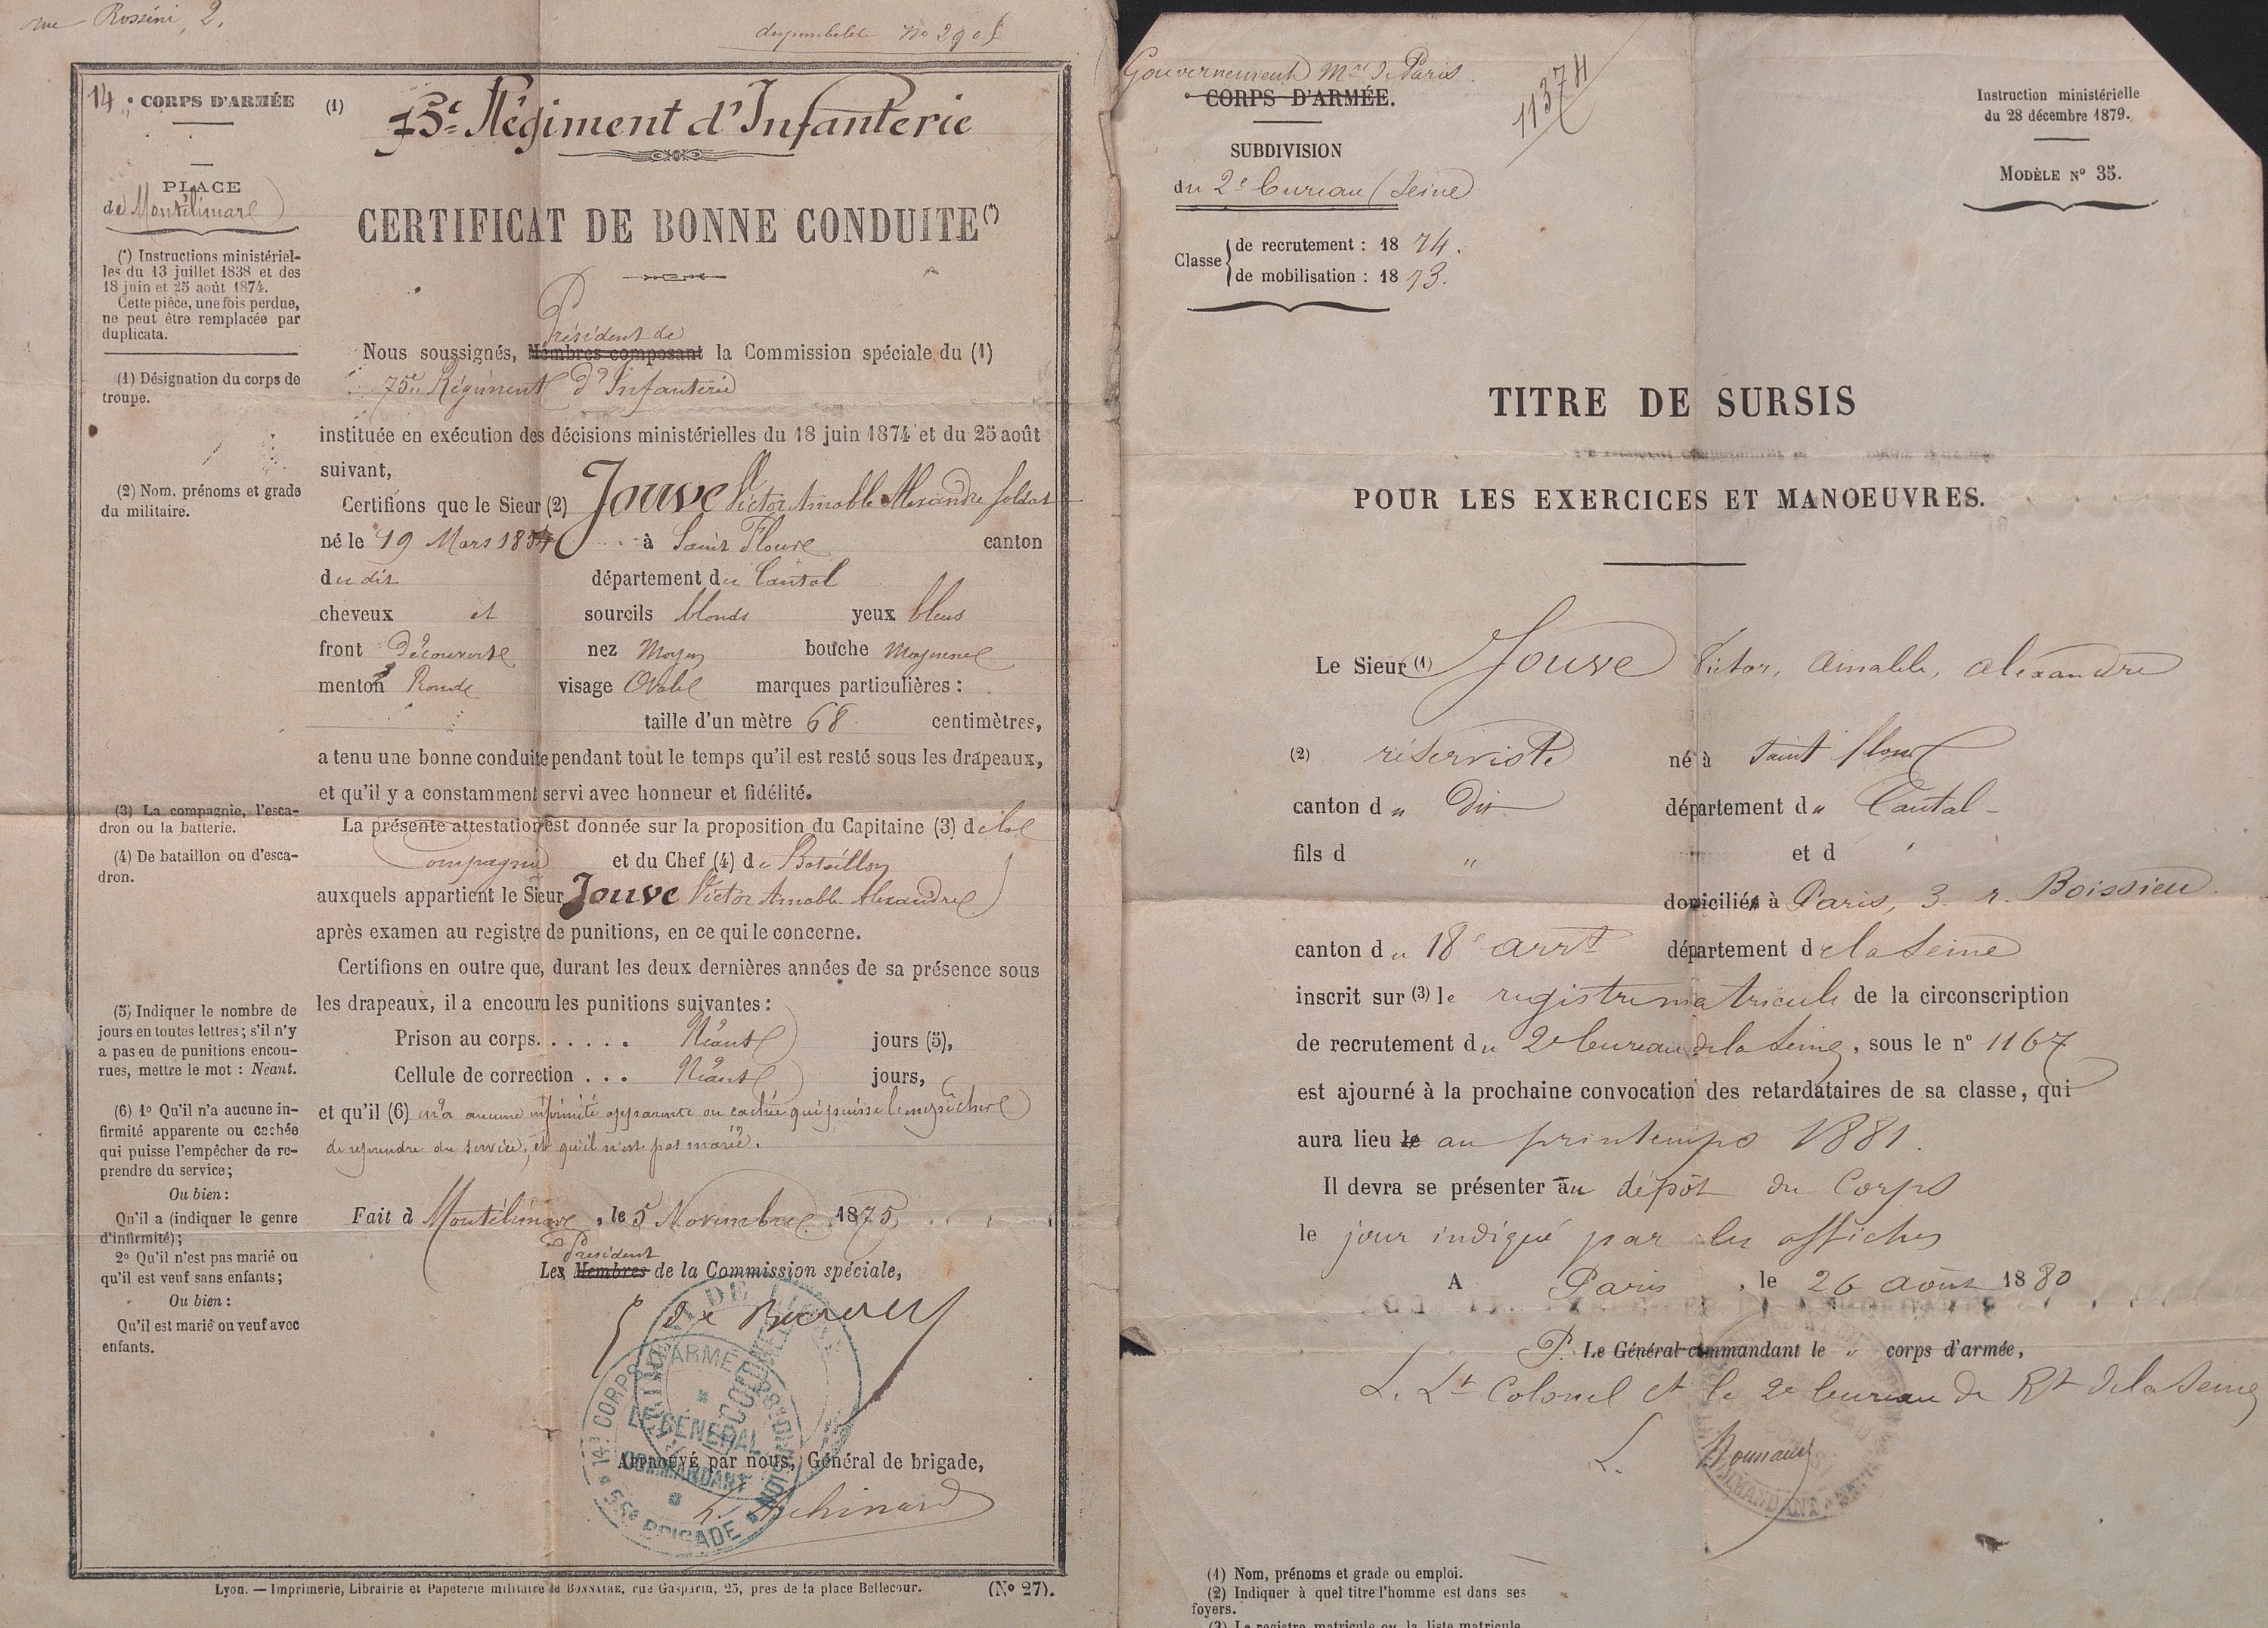 rue Rossini, 2,
disponibilité No 2905
14e CORPS D'ARMÉE
PLACE
de Montélimar
(*) Instructions ministériel-
les du 13 juillet 1838 et des
18 juin et 25 août 1874.
Cette pièce, une fois perdue,
ne peut être remplacée par
duplicata.
(1) Désignation du corps de
troupe.
(2) Nom, prénoms et grade
du militaire.
(3) La compagnie, l'esca-
dron ou la batterie.
(4) De bataillon ou d'esca-
dron.
(5) Indiquer le nombre de
jours en toutes lettres; s'il n'y
a pas eu de punitions encou-
rues, mettre le mot : Néant.
(6) 1o Qu'il n'a aucune in-
firmité apparente ou cachée
qui puisse l'empêcher de re-
prendre du service;
Ou bien :
Qu'il a (indiquer le genre
d'infirmité);
2o Qu'il n'est pas marié ou
qu'il est veuf sans enfants;
Ou bien :
Qu'il est marié ou veuf avec
enfants.
(1) 75e Régiment d'Infanterie
CERTIFICAT DE BONNE CONDUITE(*)
Président de
Nous soussignés, Membres composant la Commission spéciale du (1)
75e Régiment d'Infanterie
instituée en exécution des décisions ministérielles du 18 juin 1874 et du 25 août
suivant,
Certifions que le Sieur (2) Jouve Victor Amable Alexandre soldat
né le 19 Mars 1854 à Saint Flour canton
du dit département du Cantal
cheveux et sourcils blonds yeux bleus
front Découvert nez Moyen bouche Moyenne
menton Rond visage Ovale marques particulières :
taille d'un mètre 68 centimètres,
a tenu une bonne conduite pendant tout le temps qu'il est resté sous les drapeaux,
et qu'il y a constamment servi avec honneur et fidélité.
La présente attestation est donnée sur la proposition du Capitaine (3) de la
Compagnie et du Chef (4) de Bataillon
auxquels appartient le Sieur Jouve Victor Amable Alexandre
après examen au registre de punitions, en ce qui le concerne.
Certifions en outre que, durant les deux dernières années de sa présence sous
les drapeaux, il a encouru les punitions suivantes :
Prison au corps. . . . . . Néant jours (5),
Cellule de correction . . . Néant jours,
et qu'il (6) n'a aucune infirmité apparente ou cachée qui puisse l'empêcher
de reprendre du service, et qu'il n'est pas marié.
Fait à Montélimar, le 5 Novembre 1875
Président
Les Membres de la Commission spéciale,
14e CORPS D'ARMÉE
28e DIVISION
LE GÉNÉRAL
COMMANDANT
55e BRIGADE
Approuvé par nous, Général de brigade,
Lyon. — Imprimerie, Librairie et Papeterie militaire de BONNAIRE, rue Gasparin, 25, près de la place Bellecour. (No 27).
Gouvernement Mre de Paris.
CORPS D'ARMÉE.
11374
SUBDIVISION
du 2e bureau (Seine)
Classe de recrutement : 1874.
de mobilisation : 1873.
Instruction ministérielle
du 28 décembre 1879.
MODÈLE No 35.
TITRE DE SURSIS
POUR LES EXERCICES ET MANOEUVRES.
Le Sieur (1) Jouve Victor, Amable, Alexandre
(2) réserviste né à Saint flour
canton du Dit département du Cantal
fils d " et d
domicilié à Paris, 3 r. Boissieu.
canton du 18e arrt département de la Seine
inscrit sur (3) le registre matricule de la circonscription
de recrutement du 2e bureau de la Seine, sous le no 1167
est ajourné à la prochaine convocation des retardataires de sa classe, qui
aura lieu le au printemps 1881.
Il devra se présenter au dépôt du Corps
le jour indiqué par les affiches
A Paris, le 26 août 1880
P. Le Général commandant le " corps d'armée,
L. Lt Colonel Ct le 2e bureau de Rt de la Seine
(1) Nom, prénoms et grade ou emploi.
(2) Indiquer à quel titre l'homme est dans ses
foyers.
(3) Le registre matricule ou la liste matricule